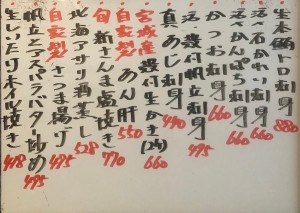 生本鮪トロ刺身 880
活〆石かれい刺身 660
活〆かんぱち刺身 660
かつお刺身 660
活〆殻付帆立刺身 495
真あじ刺身 490
宮城産殻付生かき(2ヶ) 660
自家製あん肝 550
旬新さんま塩焼き 770
北海アサリ酒蒸し 528
自家製さつま揚げ 495
帆立とアスパラバター炒め 495
生しいたけホイル焼き 418